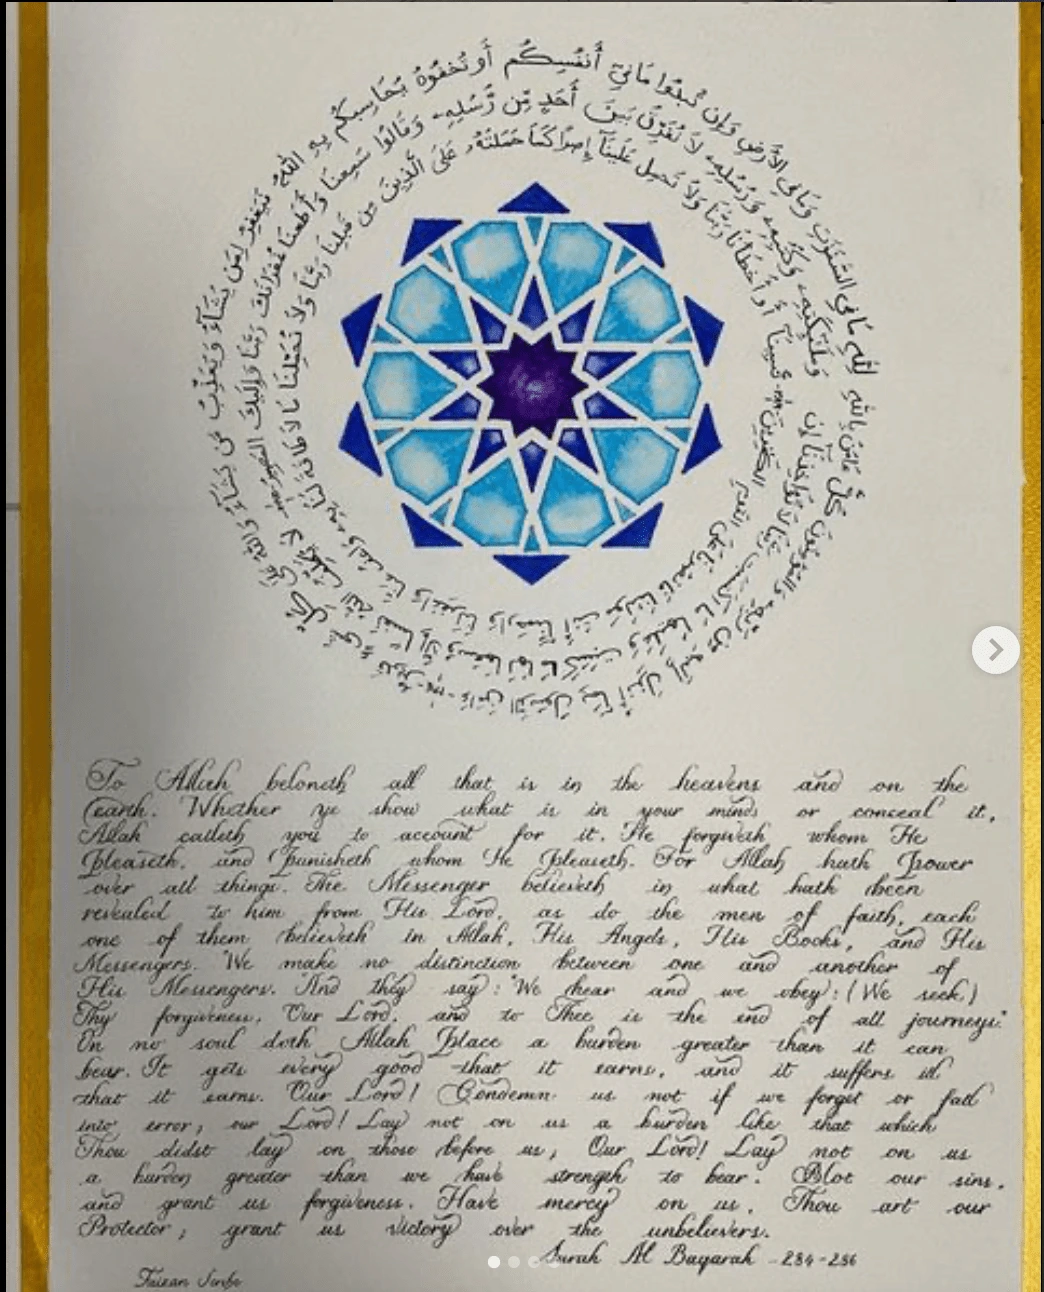 لِلَّهِ مَا فِي السَّمَٰوَٰتِ وَمَا فِي الْأَرْضِ وَإِن تُبْدُوا مَا فِيٓ أَنفُسِكُمْ أَوْ تُخْفُوهُ يُحَاسِبْكُم بِهِ اللَّهُ فَيَغْفِرُ لِمَن يَشَآءُ وَيُعَذِّبُ مَن يَشَآءُ وَاللَّهُ عَلَىٰ كُلِّ شَيْءٍ قَدِيرٌ ءَامَنَ الرَّسُولُ بِمَآ أُنزِلَ إِلَيْهِ مِن رَّبِّهِ وَالْمُؤْمِنُونَ
كُلٌّ ءَامَنَ بِاللَّهِ وَمَلَٰٓئِكَتِهِ وَكُتُبِهِ وَرُسُلِهِ لَا نُفَرِّقُ بَيْنَ أَحَدٍ مِّن رُّسُلِهِ وَقَالُوا سَمِعْنَا وَأَطَعْنَا غُفْرَانَكَ رَبَّنَا وَإِلَيْكَ الْمَصِيرُ لَا يُكَلِّفُ اللَّهُ نَفْسًا إِلَّا وُسْعَهَا لَهَا مَا كَسَبَتْ وَعَلَيْهَا مَا اكْتَسَبَتْ رَبَّنَا لَا تُؤَاخِذْنَآ إِن
نَّسِينَآ أَوْ أَخْطَأْنَا رَبَّنَا وَلَا تَحْمِلْ عَلَيْنَآ إِصْرًا كَمَا حَمَلْتَهُ عَلَى الَّذِينَ مِن قَبْلِنَا رَبَّنَا وَلَا تُحَمِّلْنَا مَا لَا طَاقَةَ لَنَا بِهِ وَاعْفُ عَنَّا وَاغْفِرْ لَنَا وَارْحَمْنَا أَنتَ مَوْلَٰنَا فَانصُرْنَا عَلَى الْقَوْمِ الْكَٰفِرِينَ
To Allah beloneth all that is in the heavens and on the
earth. Whether ye show what is in your minds or conceal it,
Allah calleth you to account for it. He forgiveth whom He
pleaseth, and punisheth whom He pleaseth. For Allah hath power
over all things. The Messenger believeth in what hath been
revealed to him from His Lord, as do the men of faith, each
one of them believeth in Allah, His Angels, His Books, and His
Messengers. "We make no distinction between one and another of
His Messengers. "And they say: "We hear and we obey: (We seek)
Thy forgiveness, Our Lord, and to Thee is the end of all journeys."
On no soul doth Allah place a burden greater than it can
bear. It gets every good that it earns, and it suffers ill
that it earns. Our Lord! Condemn us not if we forget or fall
into error; our Lord! Lay not on us a burden like that which
Thou didst lay on those before us; Our Lord! Lay not on us
a burden greater than we have strength to bear. Blot our sins,
and grant us forgiveness. Have mercy on us. Thou art our
Protector; grant us victory over the unbelievers.
Surah Al Baqarah - 284-286
Faizan